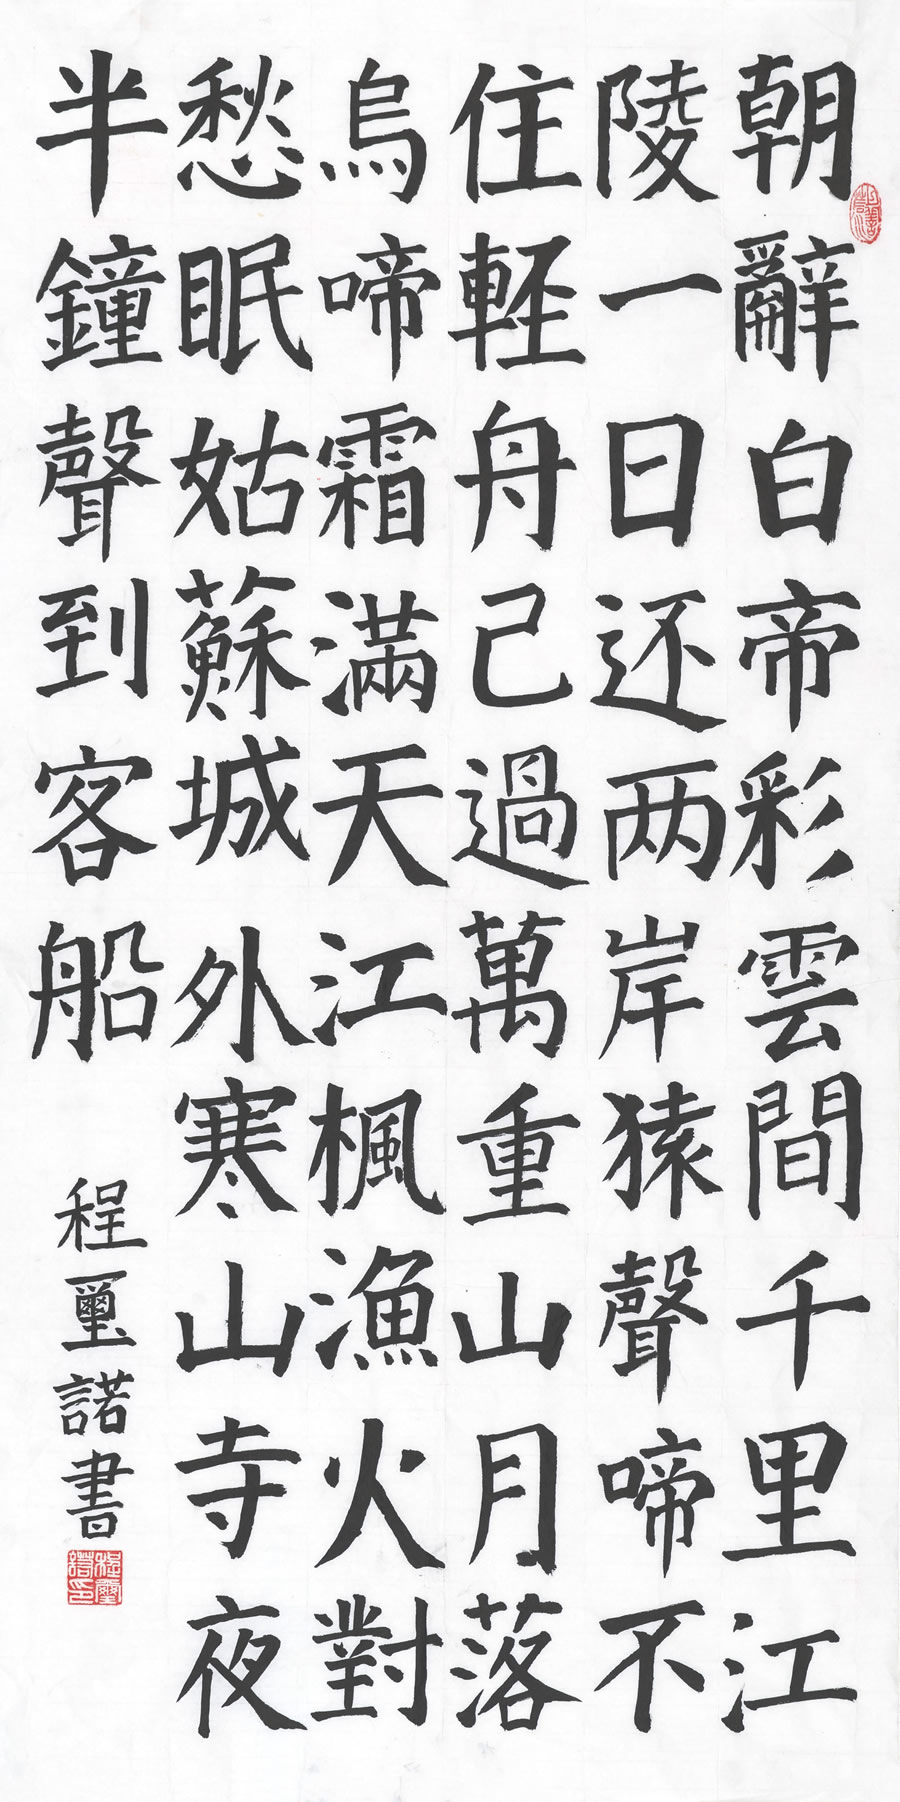 朝辭白帝彩雲間千里江
陵一日还两岸猿聲啼不
住軽舟已過萬重山月落
烏啼霜滿天江楓漁火對
愁眠姑蘇城外寒山寺夜
半鐘聲到客船
程璽諾書
程璽諾印